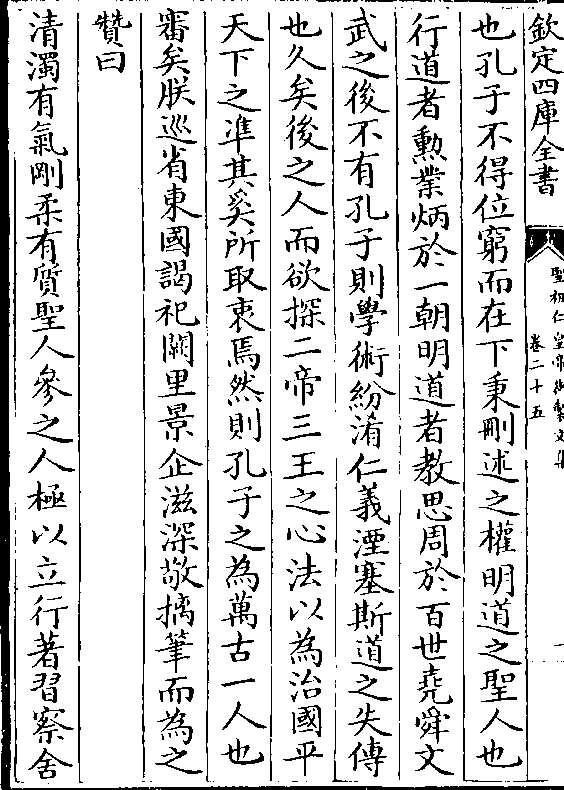 欽定四庫全書
聖祖仁皇帝御製文集
卷二十五
一
也孔子不得位窮而在下秉刪述之權明道之聖人也
行道者勲業炳於一朝明道者教思周於百世堯舜文
武之後不有孔子則學術紛淆仁義湮塞斯道之失傳
也久矣後之人而欲探二帝三王之心法以為治國平
天下之準其奚所取衷焉然則孔子之為萬古一人也
審矣朕巡省東國謁祀闕里景企滋深敬摛筆而為之
贊曰
清濁有氣剛柔有質聖人參之人極以立行著習察舍